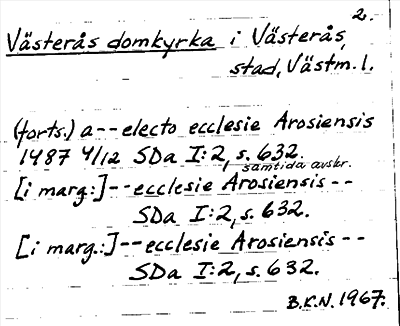 2.
Västerås domkyrka i Västerås,
stad, Västm. l.
(forts.) a--electo ecclesie Arosiensis
1487 4/12 SDa I:2, s. 632.
samtida avskr.
[i marg.:]--ecclesie Arosiensis--
SDa I:2, s. 632.
[i marg.:]--ecclesie Arosiensis--
SDa I:2, s. 632.
B.K.N. 1967.